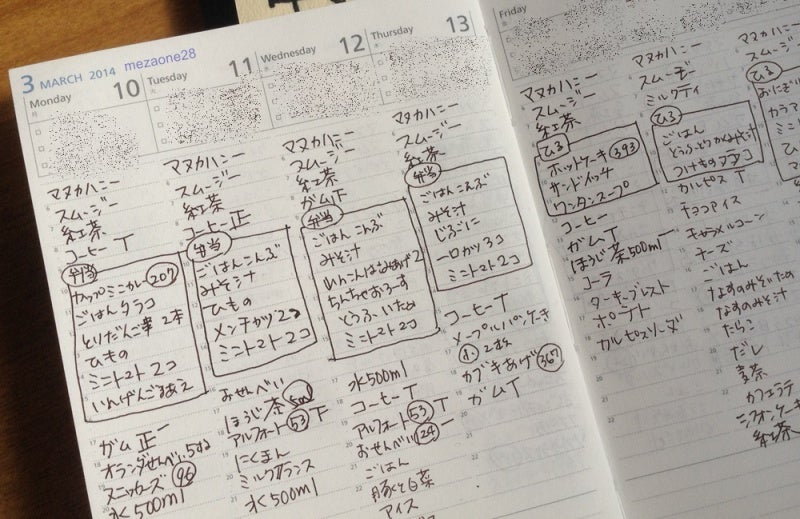 3 MARCH 2014 mezaone28
Monday 10
マヌカハニー
スムージー
紅茶
コーヒー T
弁当
カップミニカレー 207
ごはん タラコ
とりだんご 2本
ひもの
ミニトマト 2コ
いんげんごまあえ
ガム 正一
オランダせんべい 5枚
スニッカーズ 96
水500ml
Tuesday 11
マヌカハニー
スムージー
紅茶
コーヒー 正
弁当
ごはん こんぶ
みそ汁
ひもの
メンチカツ 2コ
ミニトマト 2コ
おせんべい
ほうじ茶 5ml
アルフォート 53 T
にくまん
ミルクフランス
水500ml
Wednesday 12
マヌカハニー
スムージー
紅茶
ガム 正
弁当
ごはん こんぶ
みそ汁
とうふいため
ミニトマト 2コ
水500ml
コーヒー T
アルフォート 53 T
おせんべい 124 一
ごはん
豚くと白菜
アイス
Thursday 13
マヌカハニー
スムージー
紅茶
弁当
ごはん こんぶ
みそ汁
一口カツ 3コ
ミニトマト 2コ
コーヒー T
メープルパンケーキ
小 2枚
カブキあげ 367
ガム T
Friday
マヌカハニー
スムージー
紅茶
ひる
ホットケーキ 393
サンドイッチ
ワンタンスープ
コーヒー
ガム T
ほうじ茶500ml 一
コーラ
ターキーブレスト
ポテイト
カルピスソーダ
マヌカハニー
スムージー
ミルクティ
ひる
ごはん
つけもの
カルピス T
チョコアイス
キャラメルコーン
チーズ
ごはん
なすのみそいため
なすのみそ汁
たらこ
だし
麦茶
カフェラテ
シフォンケーキ
紅茶
マヌカハニー
スムージー
ひる
おにぎり